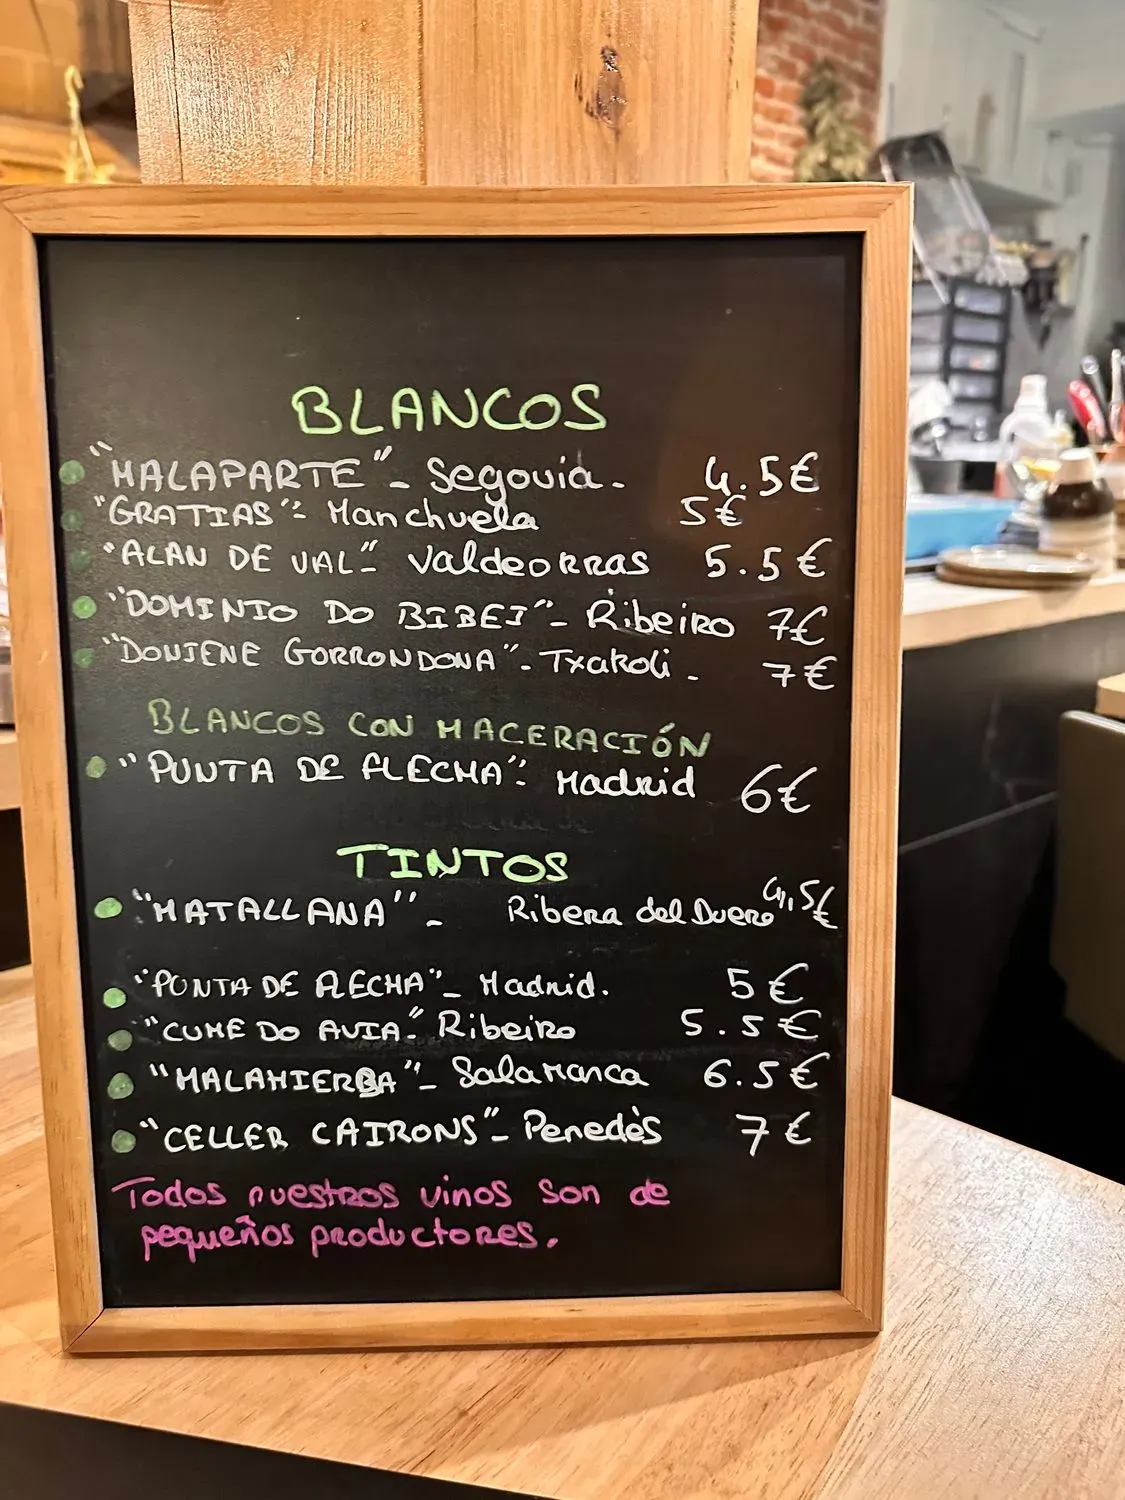 BLANCOS
"MALAPARTE" - Segovia. 4.5€
"GRATIAS" - Manchuela 5€
"ALAN DE VAL" - Valdeorras 5.5€
"DOMINIO DO BIBEI" - Ribeiro 7€
"DONIENE GORRONDONA". - Txakoli. 7€
BLANCOS CON MACERACIÓN
"PUNTA DE FLECHA" - Madrid 6€
TINTOS
"MATALLANA" - Ribera del Duero 4,5€
"PUNTA DE FLECHA" - Madrid. 5€
"CUME DO AVIA" - Ribeiro 5.5€
"MALAHIERBA" - Salamanca 6.5€
"CELLER CAIRONS" - Penedès 7€
Todos nuestros vinos son de
pequeños productores.